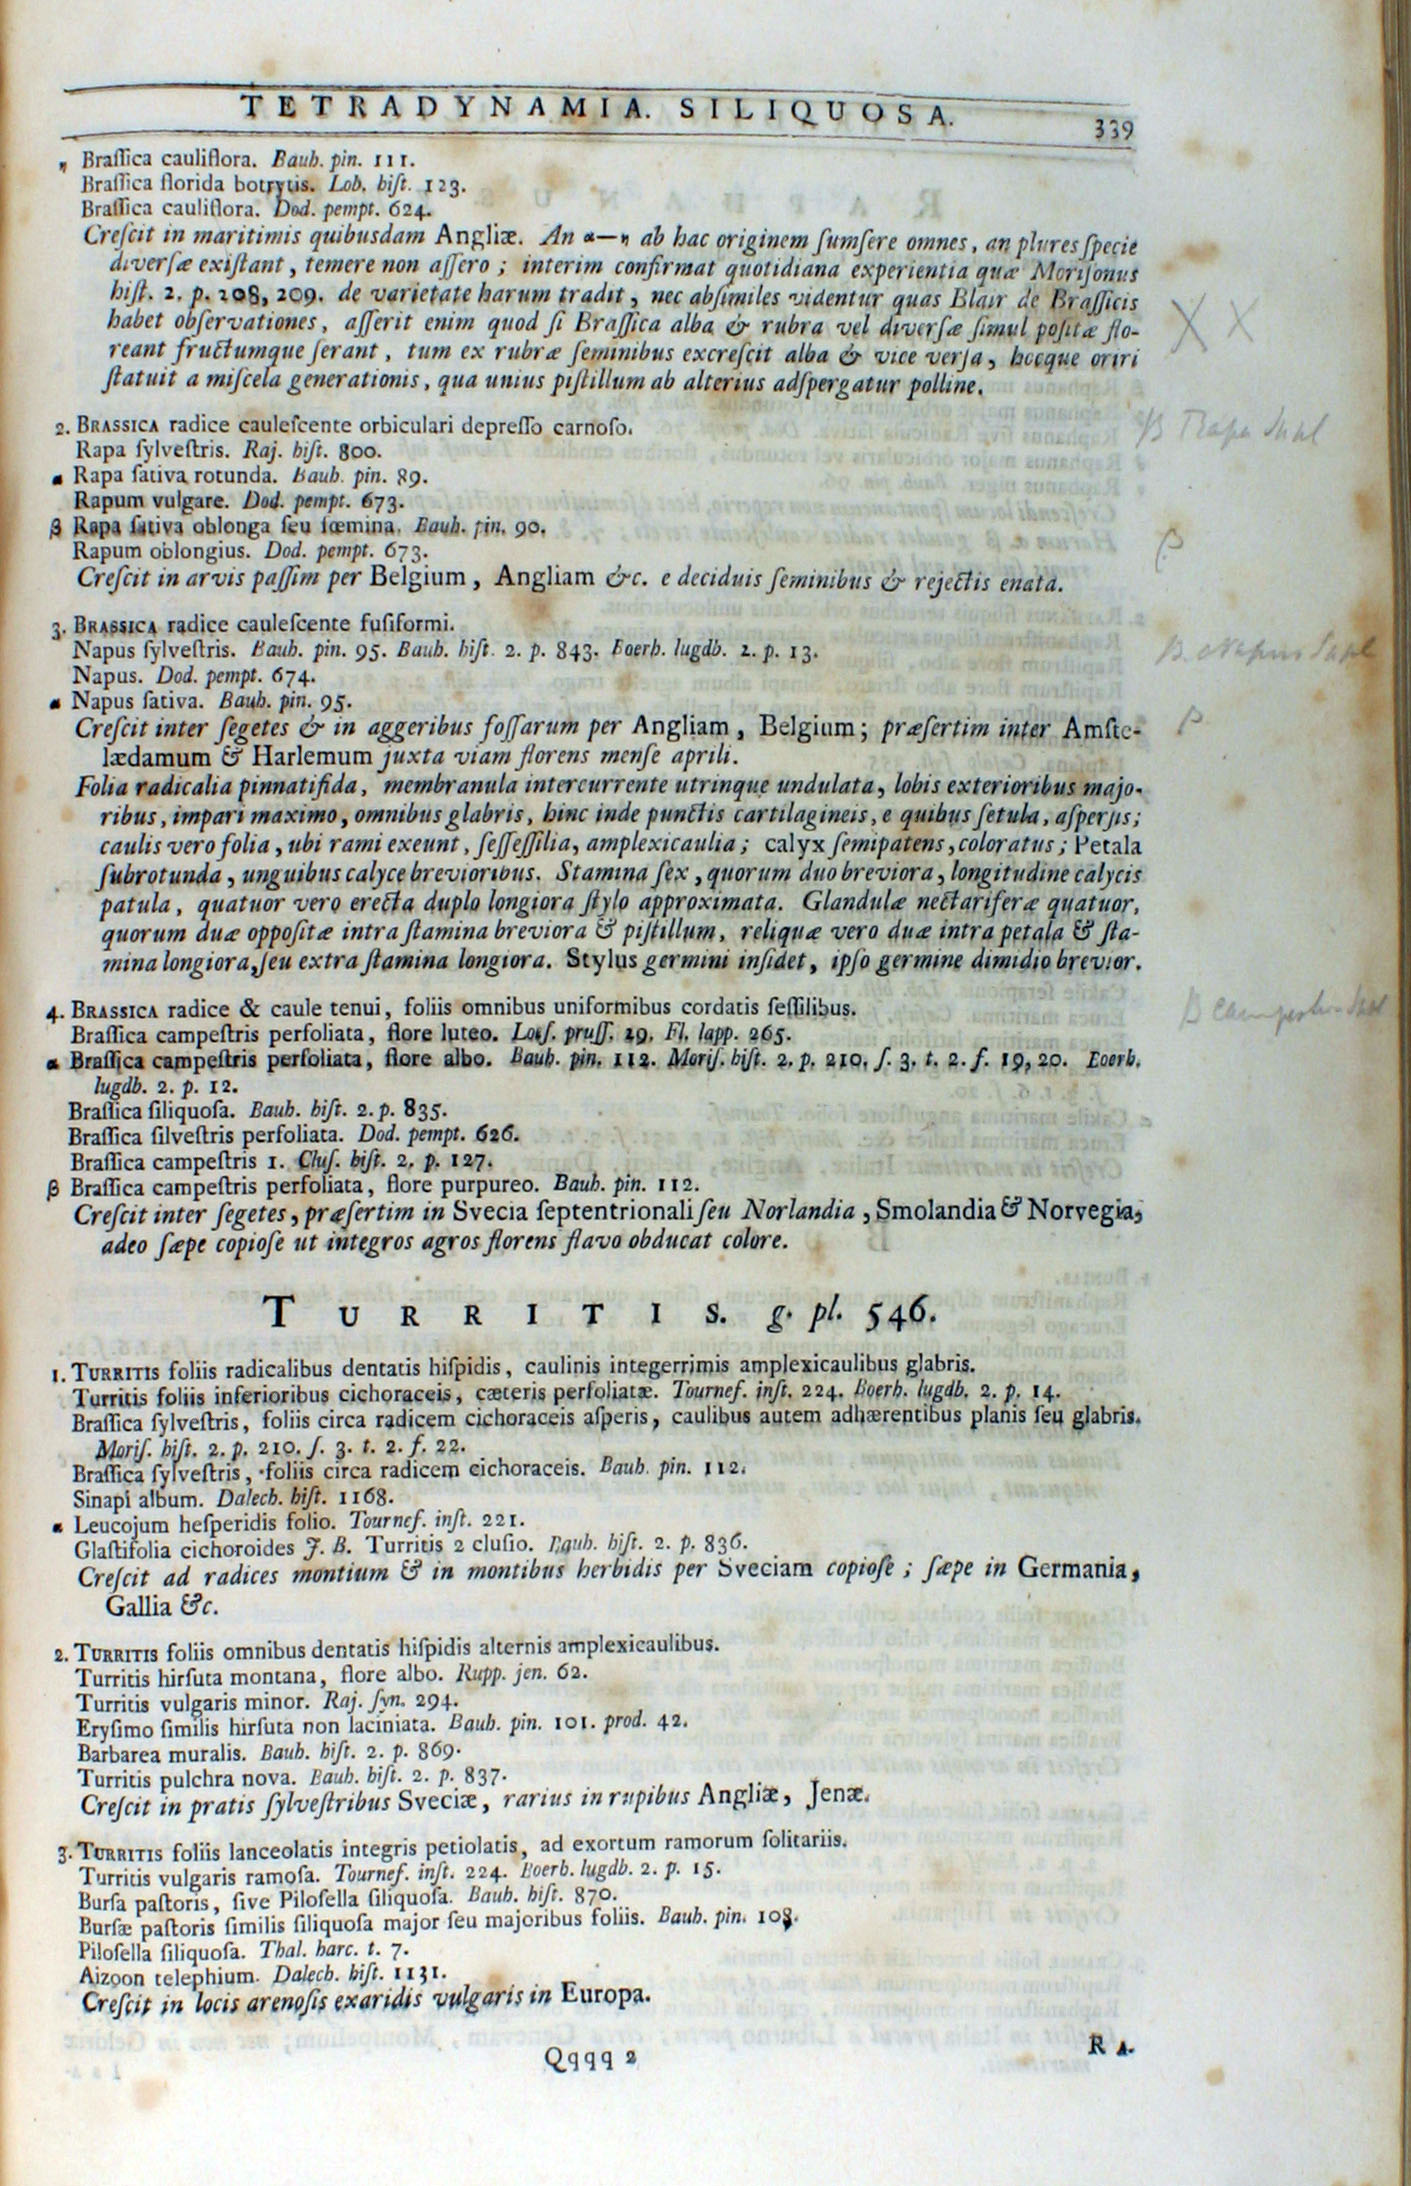 TETRADYNAMIA. SILIQUOSA. 339
η Braſſica cauliflora. Bauh. pin. 111.
Braſſica florida botrytis. Lob. hiſt. 123.
Braſſica cauliflora. Dod. pempt. 624.
Creſcit in maritimis quibusdam Angliæ. An α—η ab hac originem ſumſere omnes, an plures ſpecie
diverſæ exiſtant, temere non aſſero; interim confirmat quotidiana experientia quæ Moriſonus
hiſt. 2. p. 208, 209. de varietate harum tradit, nec abſimiles videntur quas Blair de Braſſicis
habet obſervationes, aſſerit enim quod ſi Braſſica alba & rubra vel diverſæ ſimul poſitæ flo-
reant fructumque ferant, tum ex rubræ ſeminibus excreſcit alba & vice verſa, hocque oriri
ſtatuit a miſcela generationis, qua unius piſtillum ab alterius adſpergatur polline.
X X
2. BRASSICA radice cauleſcente orbiculari depreſſo carnoſo.
B Rapa Supl
Rapa ſylveſtris. Raj. hiſt. 800.
α Rapa ſativa rotunda. Bauh. pin. 89.
Rapum vulgare. Dod. pempt. 673.
β Rapa ſativa oblonga ſeu fœmina. Bauh. pin. 90.
β
Rapum oblongius. Dod. pempt. 673.
Creſcit in arvis paſſim per Belgium, Angliam &c. e deciduis ſeminibus & rejectis enata.
3. BRASSICA radice cauleſcente fuſiformi.
Napus ſylveſtris. Bauh. pin. 95. Bauh. hiſt. 2. p. 843. Boerh. lugdb. 2. p. 13.
B. Napus Supl
Napus. Dod. pempt. 674.
α Napus ſativa. Bauh. pin. 95.
β
Creſcit inter ſegetes & in aggeribus foſſarum per Angliam, Belgium; præſertim inter Amſte-
lædamum & Harlemum juxta viam florens menſe aprili.
Folia radicalia pinnatifida, membranula intercurrente utrinque undulata, lobis exterioribus majo-
ribus, impari maximo, omnibus glabris, hinc inde punctis cartilagineis, e quibus ſetula, aſperſis;
caulis vero folia, ubi rami exeunt, ſeſſeſſilia, amplexicaulia; calyx ſemipatens, coloratus; Petala
ſubrotunda, unguibus calyce brevioribus. Stamina ſex, quorum duo breviora, longitudine calycis
patula, quatuor vero erecta duplo longiora ſtylo approximata. Glandulæ nectariferæ quatuor,
quorum duæ oppoſitæ intra ſtamina breviora & piſtillum, reliquæ vero duæ intra petala & ſta-
mina longiora, ſeu extra ſtamina longiora. Stylus germini inſidet, ipſo germine dimidio brevior.
4. BRASSICA radice & caule tenui, foliis omnibus uniformibus cordatis ſeſſilibus.
B campestris Supl
Braſſica campeſtris perfoliata, flore luteo. Loeſ. pruſſ. 29. Fl. lapp. 265.
α Braſſica campeſtris perfoliata, flore albo. Bauh. pin. 112. Moriſ. hiſt. 2. p. 210. ſ. 3. t. 2. f. 19, 20. Boerh.
lugdb. 2. p. 12.
Braſſica ſiliquoſa. Bauh. hiſt. 2. p. 835.
Braſſica ſilveſtris perfoliata. Dod. pempt. 626.
Braſſica campeſtris 1. Cluſ. hiſt. 2. p. 127.
β Braſſica campeſtris perfoliata, flore purpureo. Bauh. pin. 112.
Creſcit inter ſegetes, præſertim in Svecia ſeptentrionali ſeu Norlandia, Smolandia & Norvegia,
adeo ſæpe copioſe ut integros agros florens flavo obducat colore.
TURRITIS. g. pl. 546.
1. TURRITIS foliis radicalibus dentatis hiſpidis, caulinis integerrimis amplexicaulibus glabris.
Turritis foliis inferioribus cichoraceis, cæteris perfoliatæ. Tournef. inſt. 224. Boerh. lugdb. 2. p. 14.
Braſſica ſylveſtris, foliis circa radicem cichoraceis aſperis, caulibus autem adhærentibus planis ſeu glabris.
Moriſ. hiſt. 2. p. 210. ſ. 3. t. 2. f. 22.
Braſſica ſylveſtris, foliis circa radicem cichoraceis. Bauh. pin. 112.
Sinapi album. Dalech. hiſt. 1168.
α Leucojum heſperidis folio. Tournef. inſt. 221.
Glaſtifolia cichoroides J. B. Turritis 2 cluſio. Bauh. hiſt. 2. p. 836.
Creſcit ad radices montium & in montibus herbidis per Sveciam copioſe; ſæpe in Germania,
Gallia &c.
2. TURRITIS foliis omnibus dentatis hiſpidis alternis amplexicaulibus.
Turritis hirſuta montana, flore albo. Rupp. jen. 62.
Turritis vulgaris minor. Raj. ſyn. 294.
Eryſimo ſimilis hirſuta non laciniata. Bauh. pin. 101. prod. 42.
Barbarea muralis. Bauh. hiſt. 2. p. 869.
Turritis pulchra nova. Bauh. hiſt. 2. p. 837.
Creſcit in pratis ſylveſtribus Sveciæ, rarius in rupibus Angliæ, Jenæ.
3. TURRITIS foliis lanceolatis integris petiolatis, ad exortum ramorum ſolitariis.
Turritis vulgaris ramoſa. Tournef. inſt. 224. Boerh. lugdb. 2. p. 15.
Burſa paſtoris, ſive Piloſella ſiliquoſa. Bauh. hiſt. 870.
Burſæ paſtoris ſimilis ſiliquoſa major ſeu majoribus foliis. Bauh. pin. 108.
Piloſella ſiliquoſa. Thal. harc. t. 7.
Aizoon telephium. Dalech. hiſt. 1131.
Creſcit in locis arenoſis exaridis vulgaris in Europa.
Qqqq 2
RA-